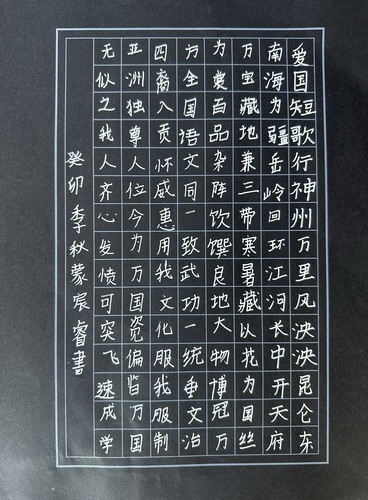 爱国短歌行神州万里风泱泱昆仑东
南海为疆岳岭回环江河长中开天府
万宝藏地兼三带寒暑藏以我为国丝
为裳百品杂陈饮馔良地大物博冠万
方全国语文同一致武功一统垂文治
四裔入贡怀威惠用我文化服我服制
亚洲独尊人位今为万国瓷偏皆万国
无似之我人齐心发愤可突飞速成学
癸卯季秋蒙宸睿書